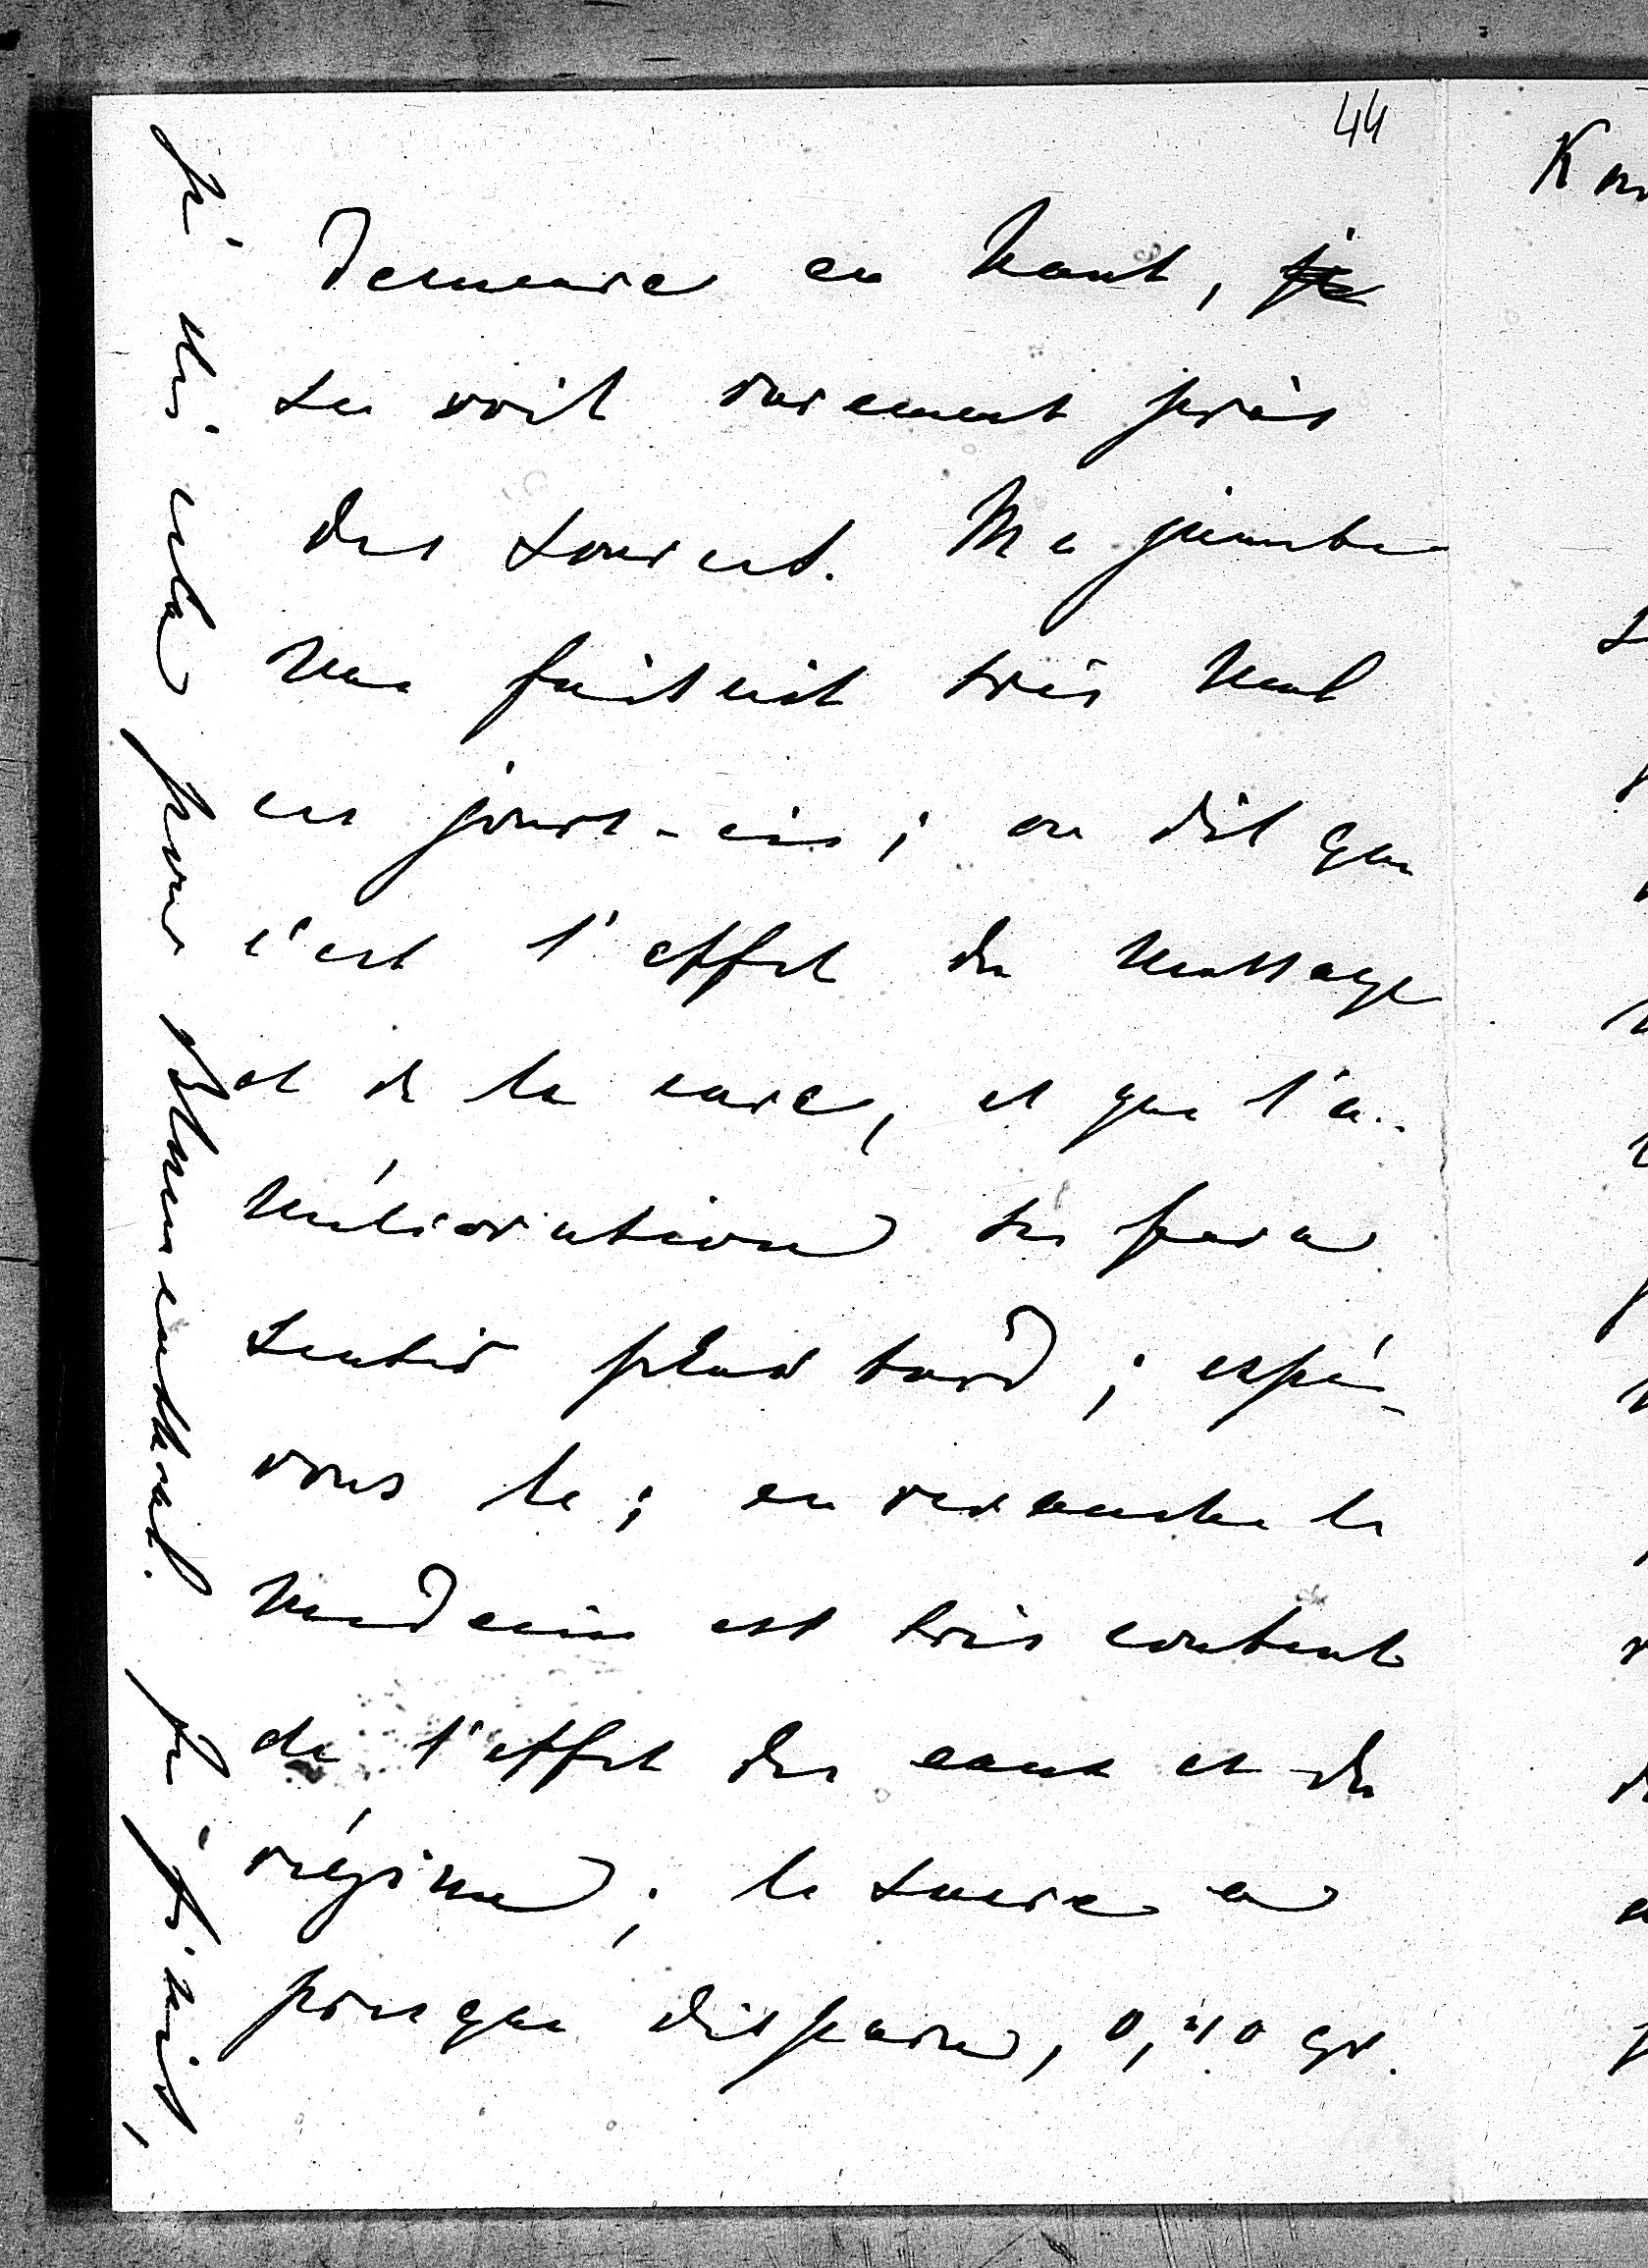 44
demeure en haut, je
se voit rarement près
des sources. Ma jambe
me faisait très mal
ces jours-ci ; on dit que
c'est l'effet du massage
et de la cure, et que l'a-
mélioration se fera
sentir plus tard ; espé-
rons le ; en revanche le
médecin est très content
de l'effet des eaux et du
régime ; le sucre a
presque disparu, 0,40 gr.
je dis cela pour Blumenthal.